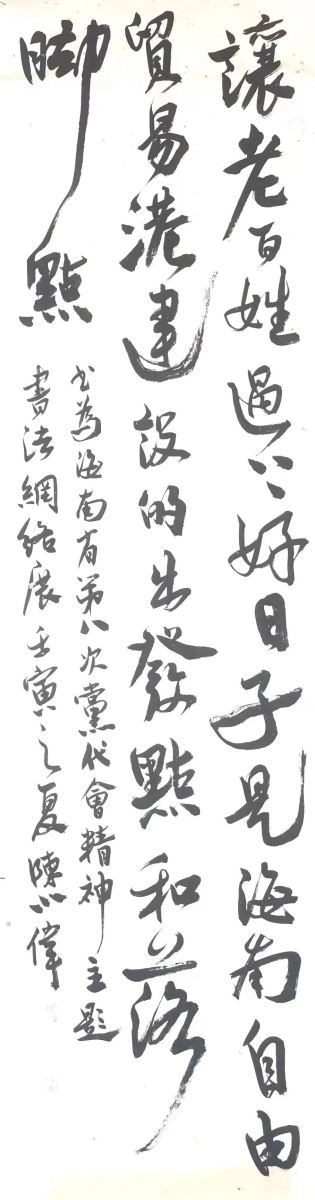 讓老百姓過上好日子是海南自由
貿易港建設的出發點和落
腳點
書為海南省第八次黨代會精神主題
書法網絡展壬寅之夏陳小偉